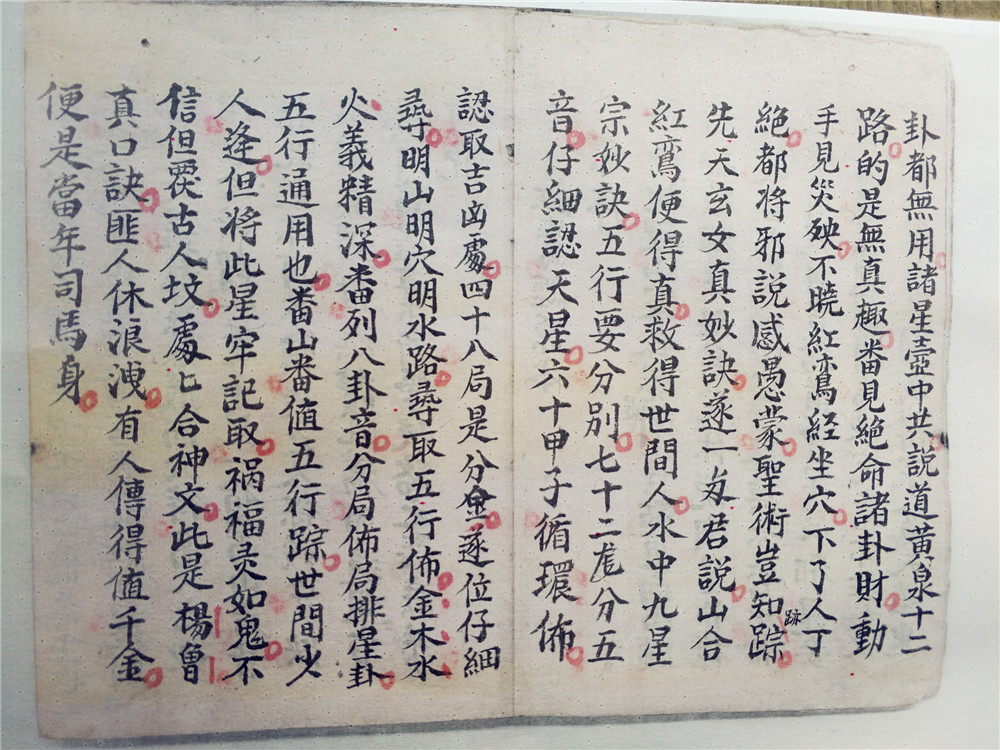 卦都無用諸星壺中共說道黄泉十二
路的是無真趣番見絶命諸卦財動
手見災殃不曉紅鸞経坐穴下了人丁
絶都将邪說感愚蒙聖術豈知踪
跡
先天玄女真妙訣遂一与君說山合
紅鸞便得真救得世間人水中九星
宗妙訣五行要分別七十二龍分五
音仔細認天星六十甲子循環佈
認取吉凶處四十八局是分金逐位仔細
尋明山明穴明水路尋取五行佈金木水
火義精深番列八卦音分局佈局排星卦
五行通用也番山番值五行踪世間少
人逢但将此星牢記取祸福灵如鬼不
信但覆古人坟處匕合神文此是楊曾
真口訣匪人休浪洩有人傳得值千金
便是當年司馬身